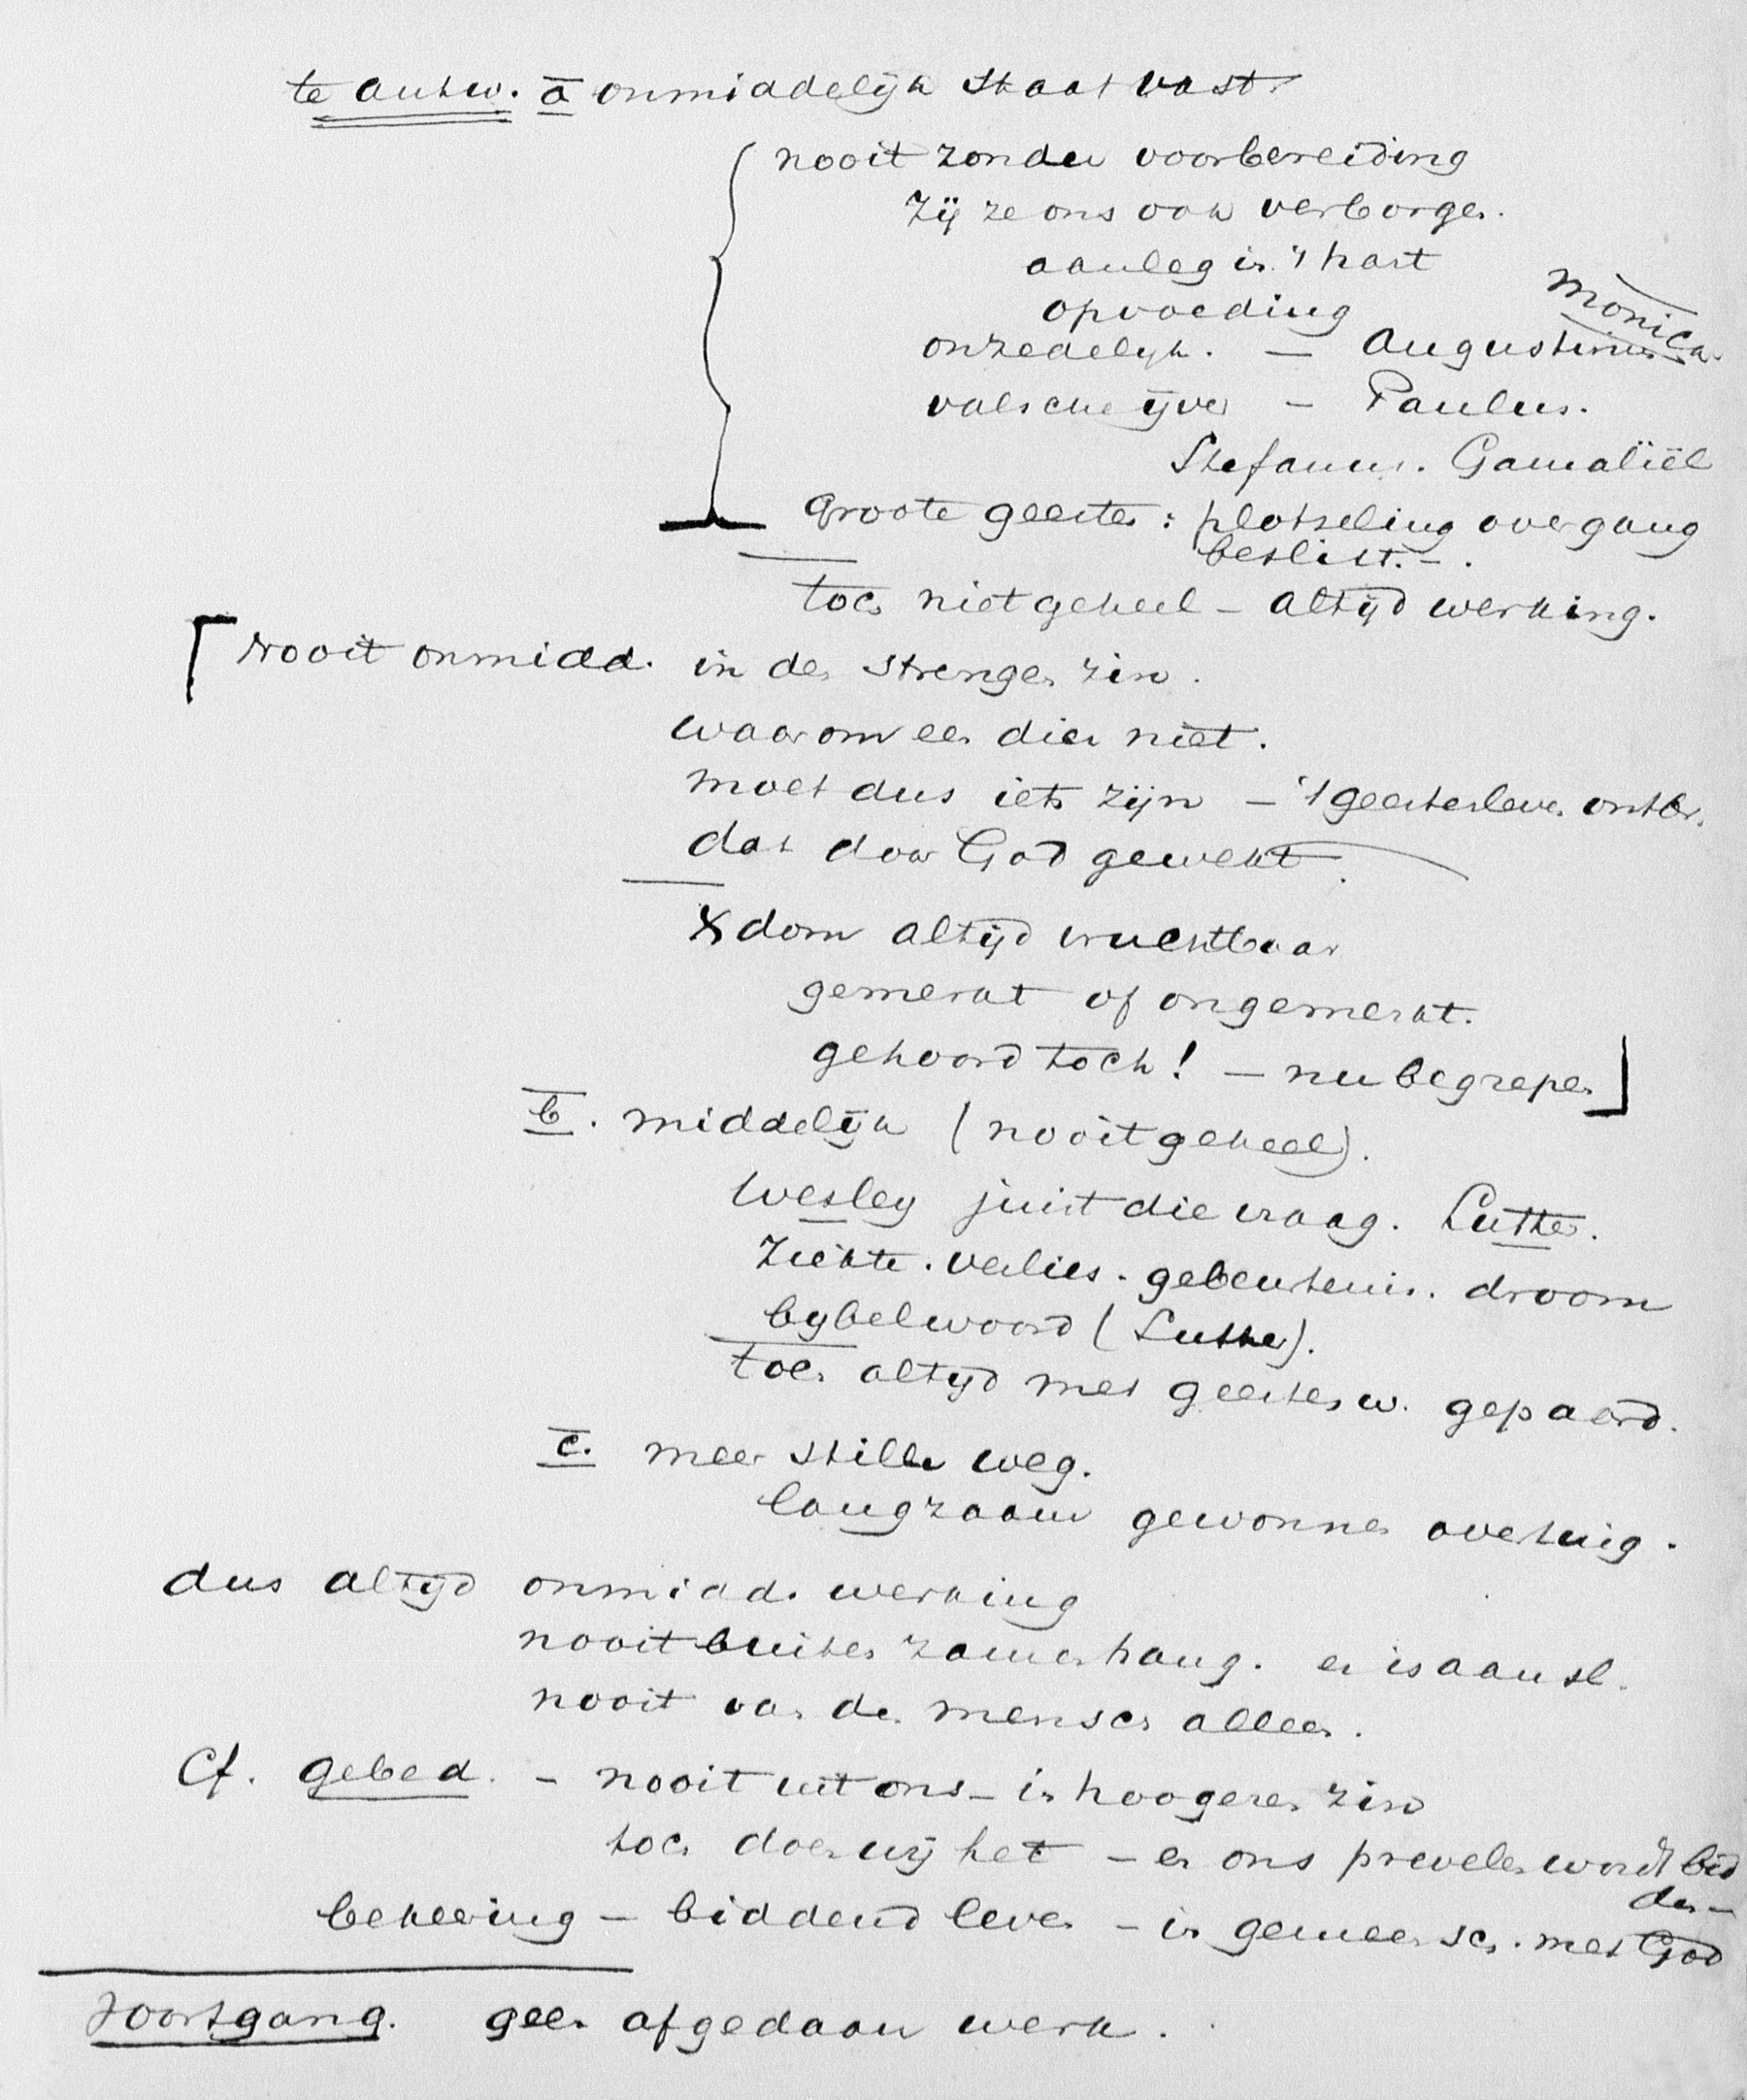 te antw. a onmiddelijk staat vast.
nooit zonder voorbereiding
zij ze ons ook verborgen.
aanleg in 't hart
opvoeding
Monica.
onzedelijk. — Augustinus
valsche ijver — Paulus.
Stefanus. Gamaliël
Groote geesten: plotseling overgang
beslist. — .
toch niet geheel — altijd werking.
Nooit onmidd. in den strengen zin.
waarom een dier niet.
moet dus iets zijn — 't geestesleven ontbr.
dat door God gewekt.
Xdom altijd vruchtbaar
gemerkt of ongemerkt.
gehoord toch! — nu begrepen
b. middelijk (nooit geheel).
Wesley juist die vraag. Luther.
Ziekte. verlies. gebeurtenis. droom
bybelwoord (Luther).
toch altyd met geestes w. gepaard.
c. meer stille weg.
langzaam gewonnen overtuig.
dus altyd onmidd. werking
nooit buiten zamenhang. er is aansl.
nooit van den mensch alleen.
Cf. gebed. — nooit uit ons — in hoogeren zin
toch doen wij het — en ons prevelen wordt bid
den —
bekeering — biddend leven — in gemeensch. met God
Voortgang. geen afgedaan werk.